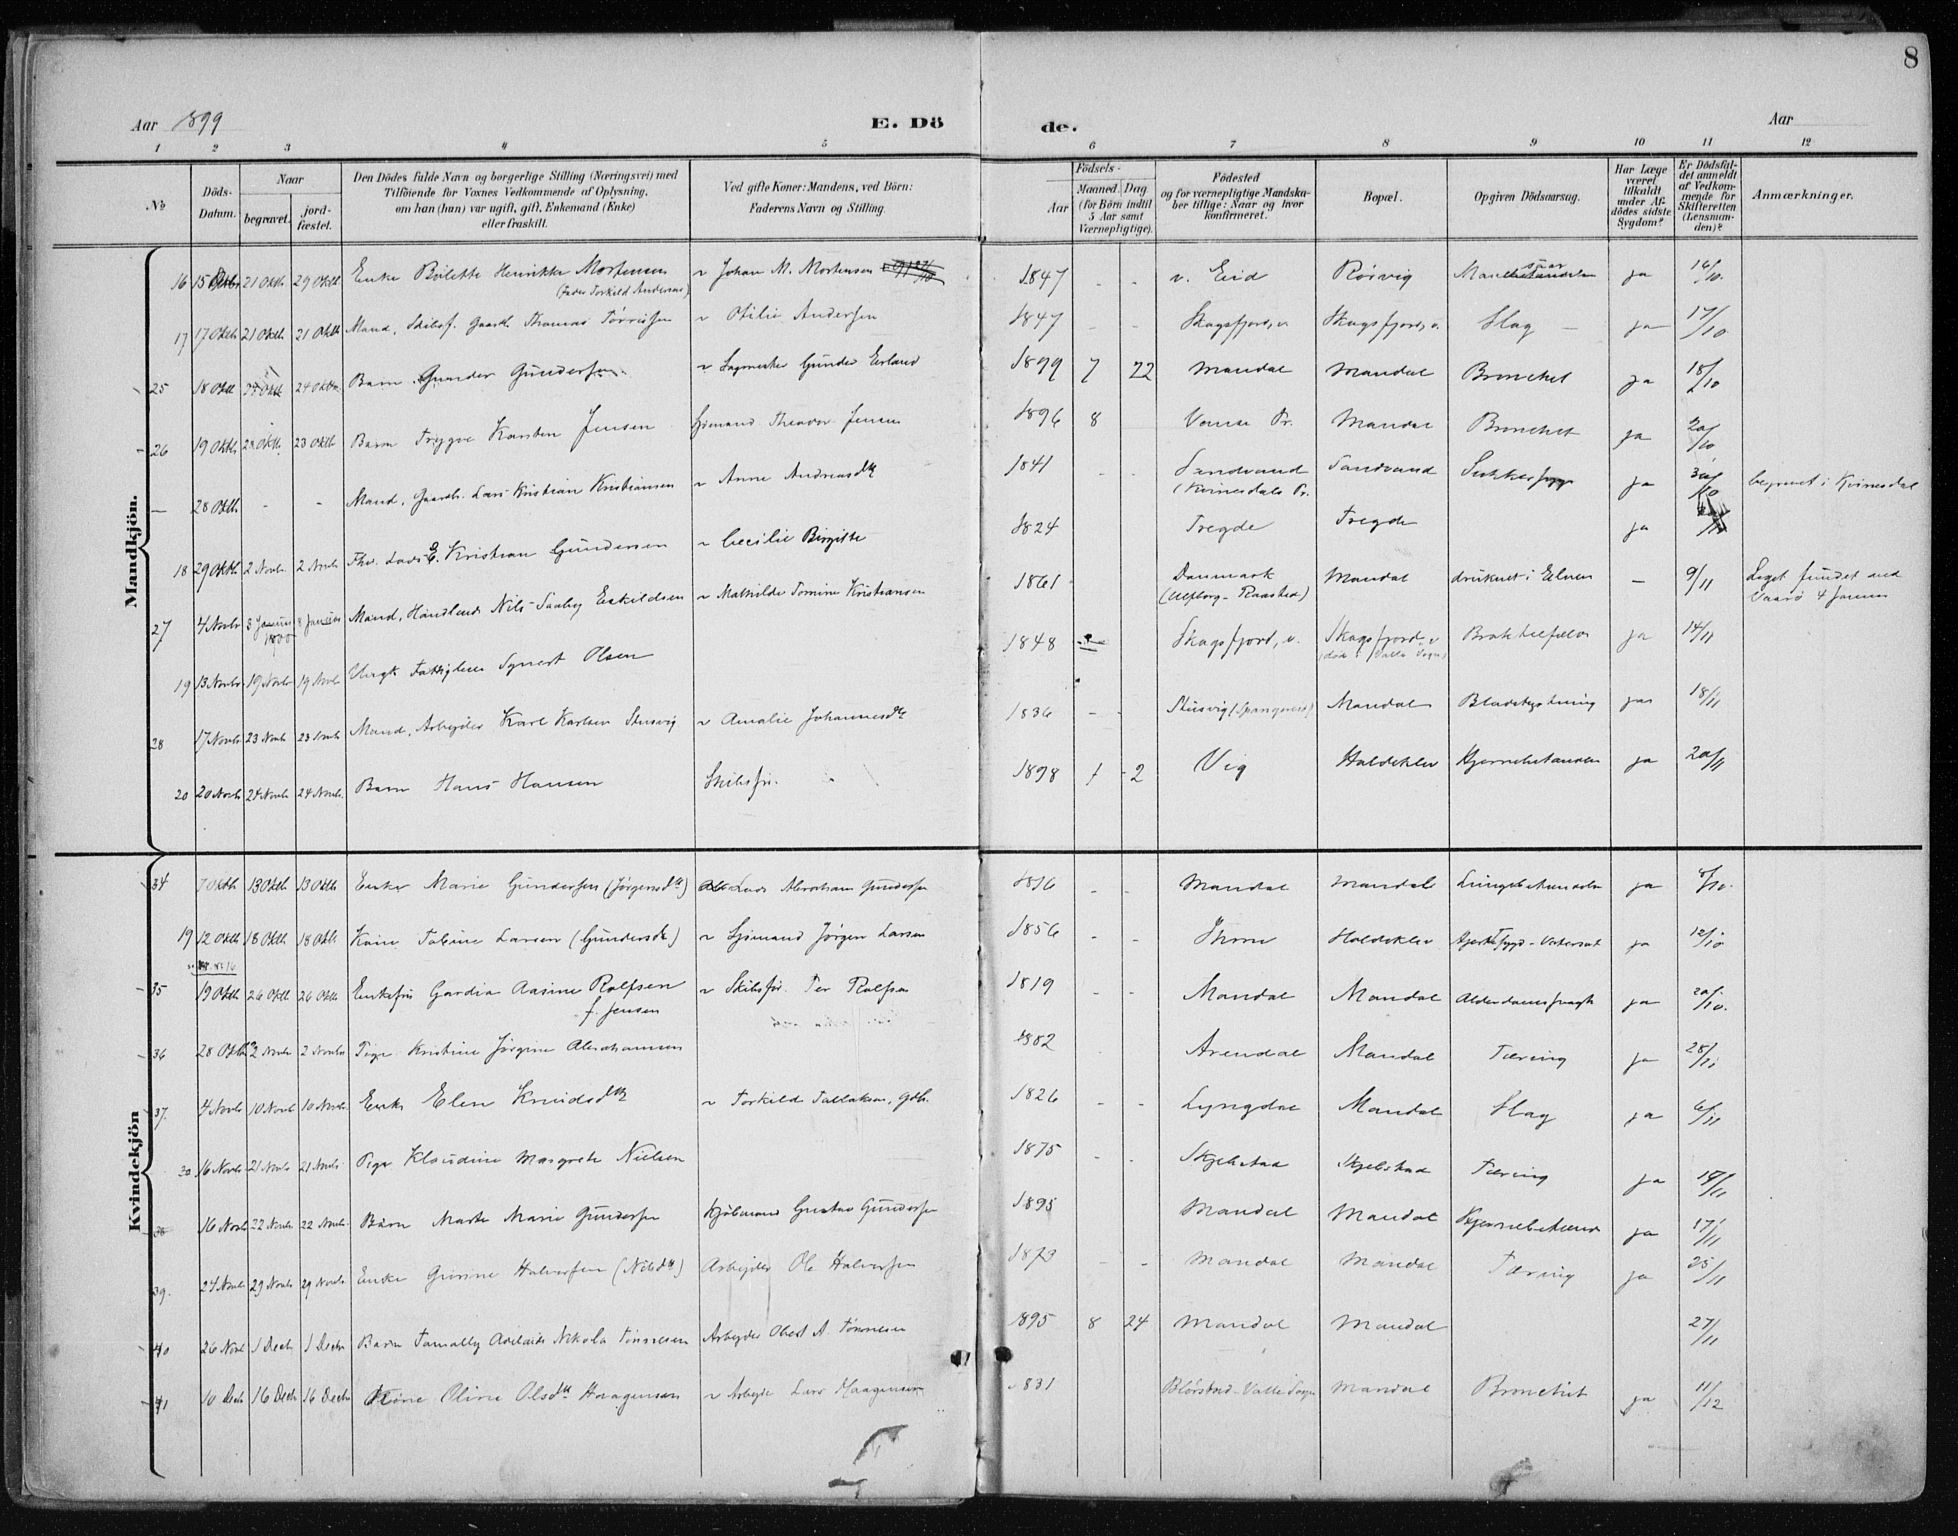 8
Aar 1899
E. Dö de.
Aar
1 2 3 4 5 6 7 8 9 10 11 12
No
Döds-Datum.
Naar
begravet.
jordfæstet.
Den Dödes fulde Navn og borgerlige Stilling (Næringsvei) med
Tilföiende for Voxnes Vedkommende af Oplysning,
om han (hun) var ugift, gift, Enkemand (Enke)
eller fraskilt.
Ved gifte Koner: Mandens, ved Börn:
Faderens Navn og Stilling.
Födsels-
Aar
Maaned
Dag
(for Börn indtil
5 Aar samt
Værnepligtige).
Födested
og for værnepligtige Mandskaber tillige: Naar og hvor
konfirmeret.
Bopæl.
Opgiven Dödsaarsag.
Har Læge
været
tilkaldt
under Afdödes sidste
Sygdom?
Er Dödsfaldet anmeldt
af Vedkommende for
Skifteretten
(Lensmanden)?
Anmærkninger.
Mandkjön.
16 15 Oktb 21 Oktb 29 Oktb Enke Henrikke Mortensen ~ Johan M. Mortensen 1847 - - v. Eid Rösvig ja 16/10.
17 17 Oktb 21 Oktb 21 Oktb Mand, Skibsf. Gaardb. Thomas Törrisen ~ Otilie Andersen 1847 - - Skogsfjord, v. Skogsfjord, v. Slag - ja 17/10
25 18 Oktb 24 Oktb Barn Gunder Gundersen ~ Gunder Erland 1899 7 22 Mandal Mandal Bronchit ja 18/10
26 19 Oktb 23 Oktb 23 Oktb Barn Trygve Karsten Jensen Sjömand Theodor Jensen 1896 8 Vanse Pr. Mandal Bronchit ja 20/10
- 28 Oktb - - Mand, Gaardb. Lars Kristian Kristiansen ~ Anne Andreasdtr 1841 - - Sandvand (Kvinesdals Pr. Sandvand Sukkersyge ja 30/10 begravet i Kvinesdal
18 29 Oktb 2 Novbr 2 Novbr Fhv. Lods E. Kristian Gundersen ~ Cecilie Birgitte 1824 Tregde Tregde ja
27 4 Novbr 8 Januar 1900 8 Januar Mand, Handlende Nils Saaby Eskildsen ~ Mathilde Tomine Kristiansen 1861 Danmark (Ulfborg - Raasted) Mandal druknet i Elven - 9/11 Liget fundet ved 4 Januar
19 13 Novbr 19 Novbr 19 Novbr Ungk. Fattiglem Syvert Olsen 1848 Skogsfjord, v. Skogsfjord, v död i Valle Sogn ja 14/11
28 17 Novbr 23 Novbr 23 Novbr Mand, Arbejder Karl Karlsen Stusvig ~ Amalie Johannesdtr 1836 - - Stusvig (Spangereid) Mandal ja 18/11
20 20 Novbr 24 Novbr 24 Novbr Barn Hans Hansen Skibsför. 1898 2 Vig Holdeklev Hjernebetændelse ja 20/11
Kvindekjön
34 7 Oktb 13 Oktb 13 Oktb Enke Marie Gundersen (Jörgensdtr) Lods Abraham Gundersen 1816 - - Mandal Mandal Lungebetændelse ja
19 12 Oktb 18 Oktb 18 Oktb Kone Tobine Larsen (Gundersdtr) ~ Sjömand Jörgen Larsen 1856 - - Holdeklev ja 12/10
35 19 Oktb 26 Oktb 26 Oktb Enkefru Gardia Aasine Rolfsen f. Jensen ~ Skibsför. Per Rolfsen 1819 - - Mandal Mandal Alderdomssvagh. ja 20/10.
36 28 Oktb 2 Novbr 2 Novbr Pige Kristine Jörgine Abrahamsen 1882 Arendal Mandal Tæring ja
37. 4 Novbr 10 Novbr 10 Novbr Enke Elen Knudsdtr ~ Torkild Tallaksen, gdb. 1826 - - Lyngdal Mandal Slag ja 6/11
20 16 Novbr 21 Novbr 21 Novbr Pige Klaudine Margrete Nielsen 1875 - - Skjebstad Skjebstad Tæring ja
38 16 Novbr 22 Novbr 22 Novbr Barn Marta Marie Gundersen Kjöbmand Gustav Gundersen 1895 Mandal Mandal Hjernebetænd. ja 17/11
39. 24 Novbr 29 Novbr 29 Novbr Enke Gurine Halvorsen (Nilsdtr) Arbejder Ole Halvorsen 1873 - - Mandal Mandal Tæring ja 25/11
40 26 Novb 1 Decb 1 Decb Barn Adelaide Nikola Tönnesen Arbejder A. Tönnesen 1895 8 24 Mandal Mandal 27/11
41 10 Decb 16 Decb 16 Decb Kone Oline Olsdtr Haagensen ~ Arbejd. Lars Haagensen 1831 Valle Sogn Mandal Bronchit ja 11/12